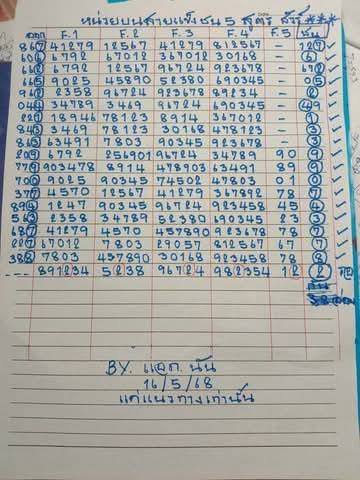 หน่วยบนสายแข็งชน 5 สูตร
ออก F.1 F.2 F.3 F.4 F.5 ชน
867 41279 12567 41279 812567 - 127 ✓
606 6792 67012 367012 30168 - 6 ✓
662 6792 12567 96724 923678 - ✓
665 9025 45890 52380 690345 - ✓
962 2358 96724 923678 89234 - 2 ✓
34789 3469 96724 690345 - 49 ✓
221 18946 78123 8914 367012 - 1 ✓
843 3469 78123 30168 478123 - 3 ✓
863 63491 7803 90345 923678 - 3 ✓
209 6792 256901 96724 34789 90 9 ✓
779 903478 8914 478903 63491 89 9 ✓
700 9025 90345 74502 47803 01 0 ✓
377 4570 12567 41279 367892 78 7 ✓
894 1247 90345 96724 923458 45 4 ✓
563 2358 34789 52380 690345 23 3 ✓
687 41279 4570 457890 923678 78 7 ✓
227 67012 7803 29057 812567 67 7 ✓
388 7803 457890 30168 923458 78 8 ✓
--- 891234 5238 96724 982354 12 2
BY. แอด. นัน
16/5/68
แค่แนวทางเท่านั้น